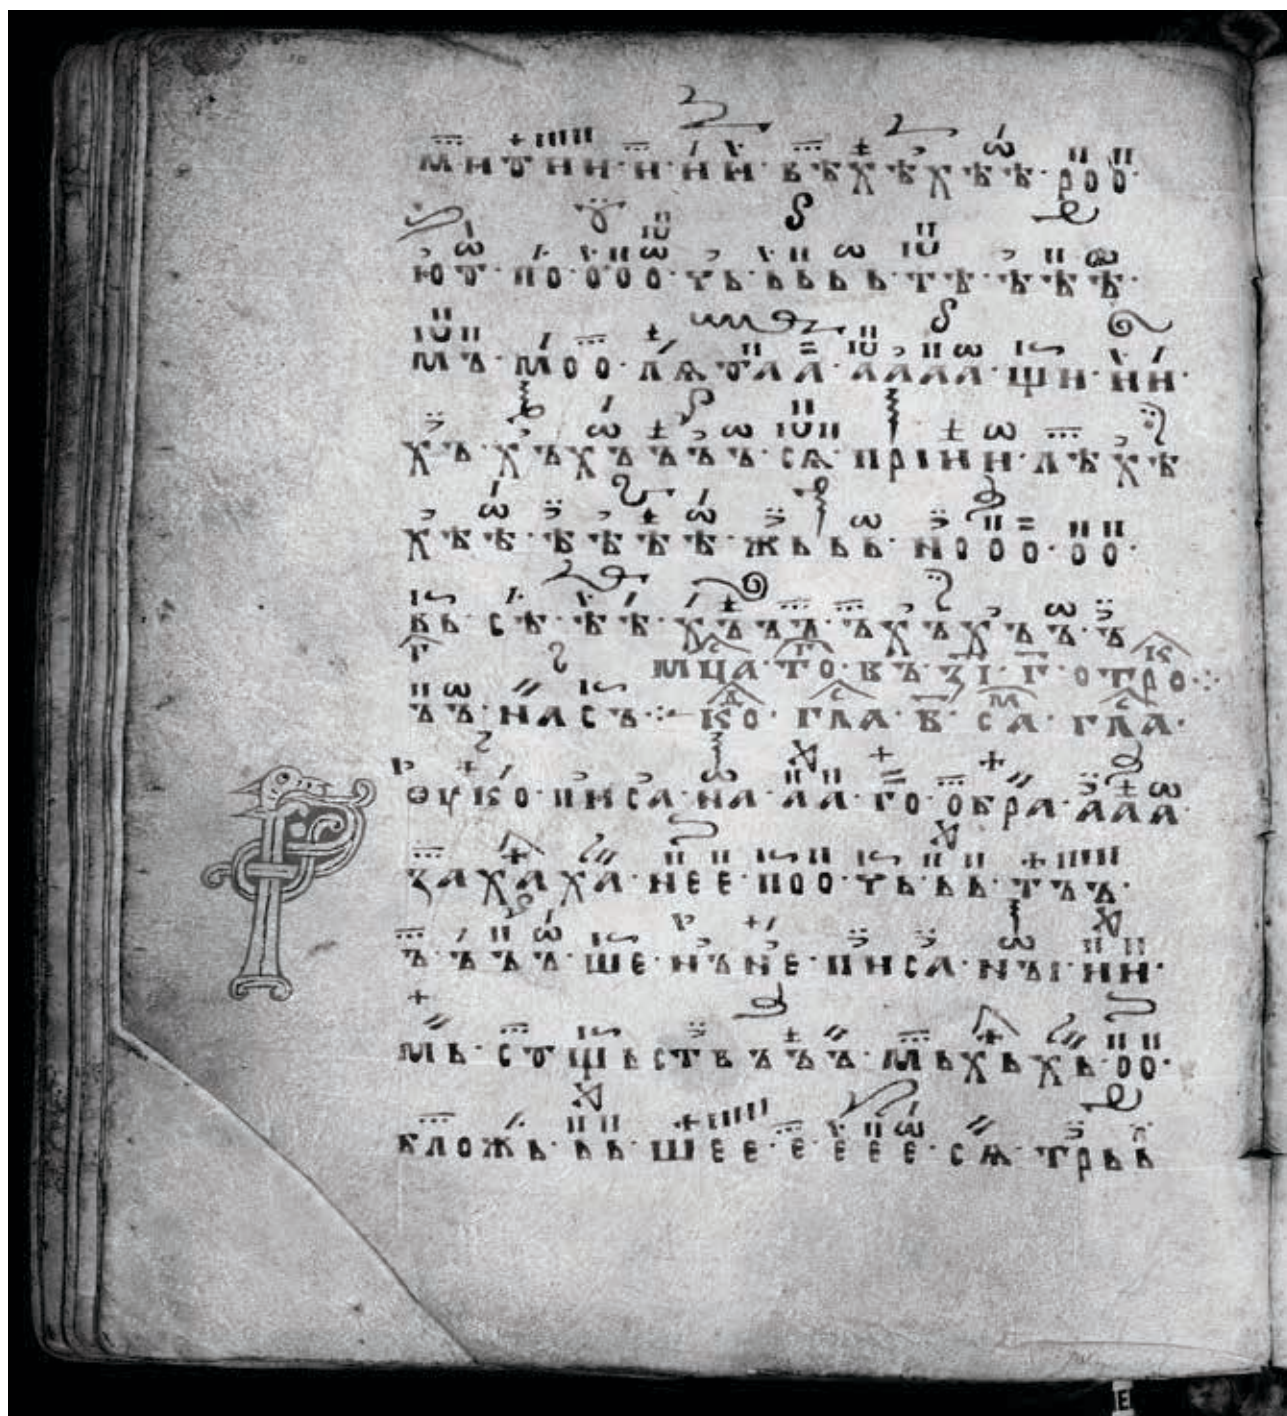 МИТИИ·И·ИИ·ВѢХѢХѢѢ·РОО·
ЮТ·ПО·ООО·ЧЬ·ЬЬЬЬ·ТѢ·ѢѢѢ·
МЪ·МОО·ЛѦТАА·АААА·ЩИ·ИИ·
ХЪ·ХЪХЪЪЪЪ·СѦ·ПРІИИ·ЛѢХѢ
ХѢѢ·ѢѢѢѢ·ЖЬЬЬ·НООО·ОО·
ВЬ·СѢ·ѢѢ·ХЪЪЪ·ЪХЪХЪЪ·Ъ
МЦА·ТО·ВЪ·ЗІ·Г·ОТРО·:·
ЪЪ·НАСЪ·:·КО·ГЛА·В·СА·ГЛА·
ѲЦКО·ПИСА·НА·АА·ГО·ОБРА·ААА
ЗАХАХА·НЕЕ·ПОО·ЧЬЬЬ·ТЪЪ·
Ъ·ЪЪЪ·ШЕ·НЪНЕ·ПИСА·НЪІ·ИИ·
МЬ·СОЩЬСТВЪЪЪ·МЬХЬХЬ·ОО·
БЛОЖЬ·ЬЬ·ШЕЕ·ЕЕЕЕ·СѦ·ТРЬЬ